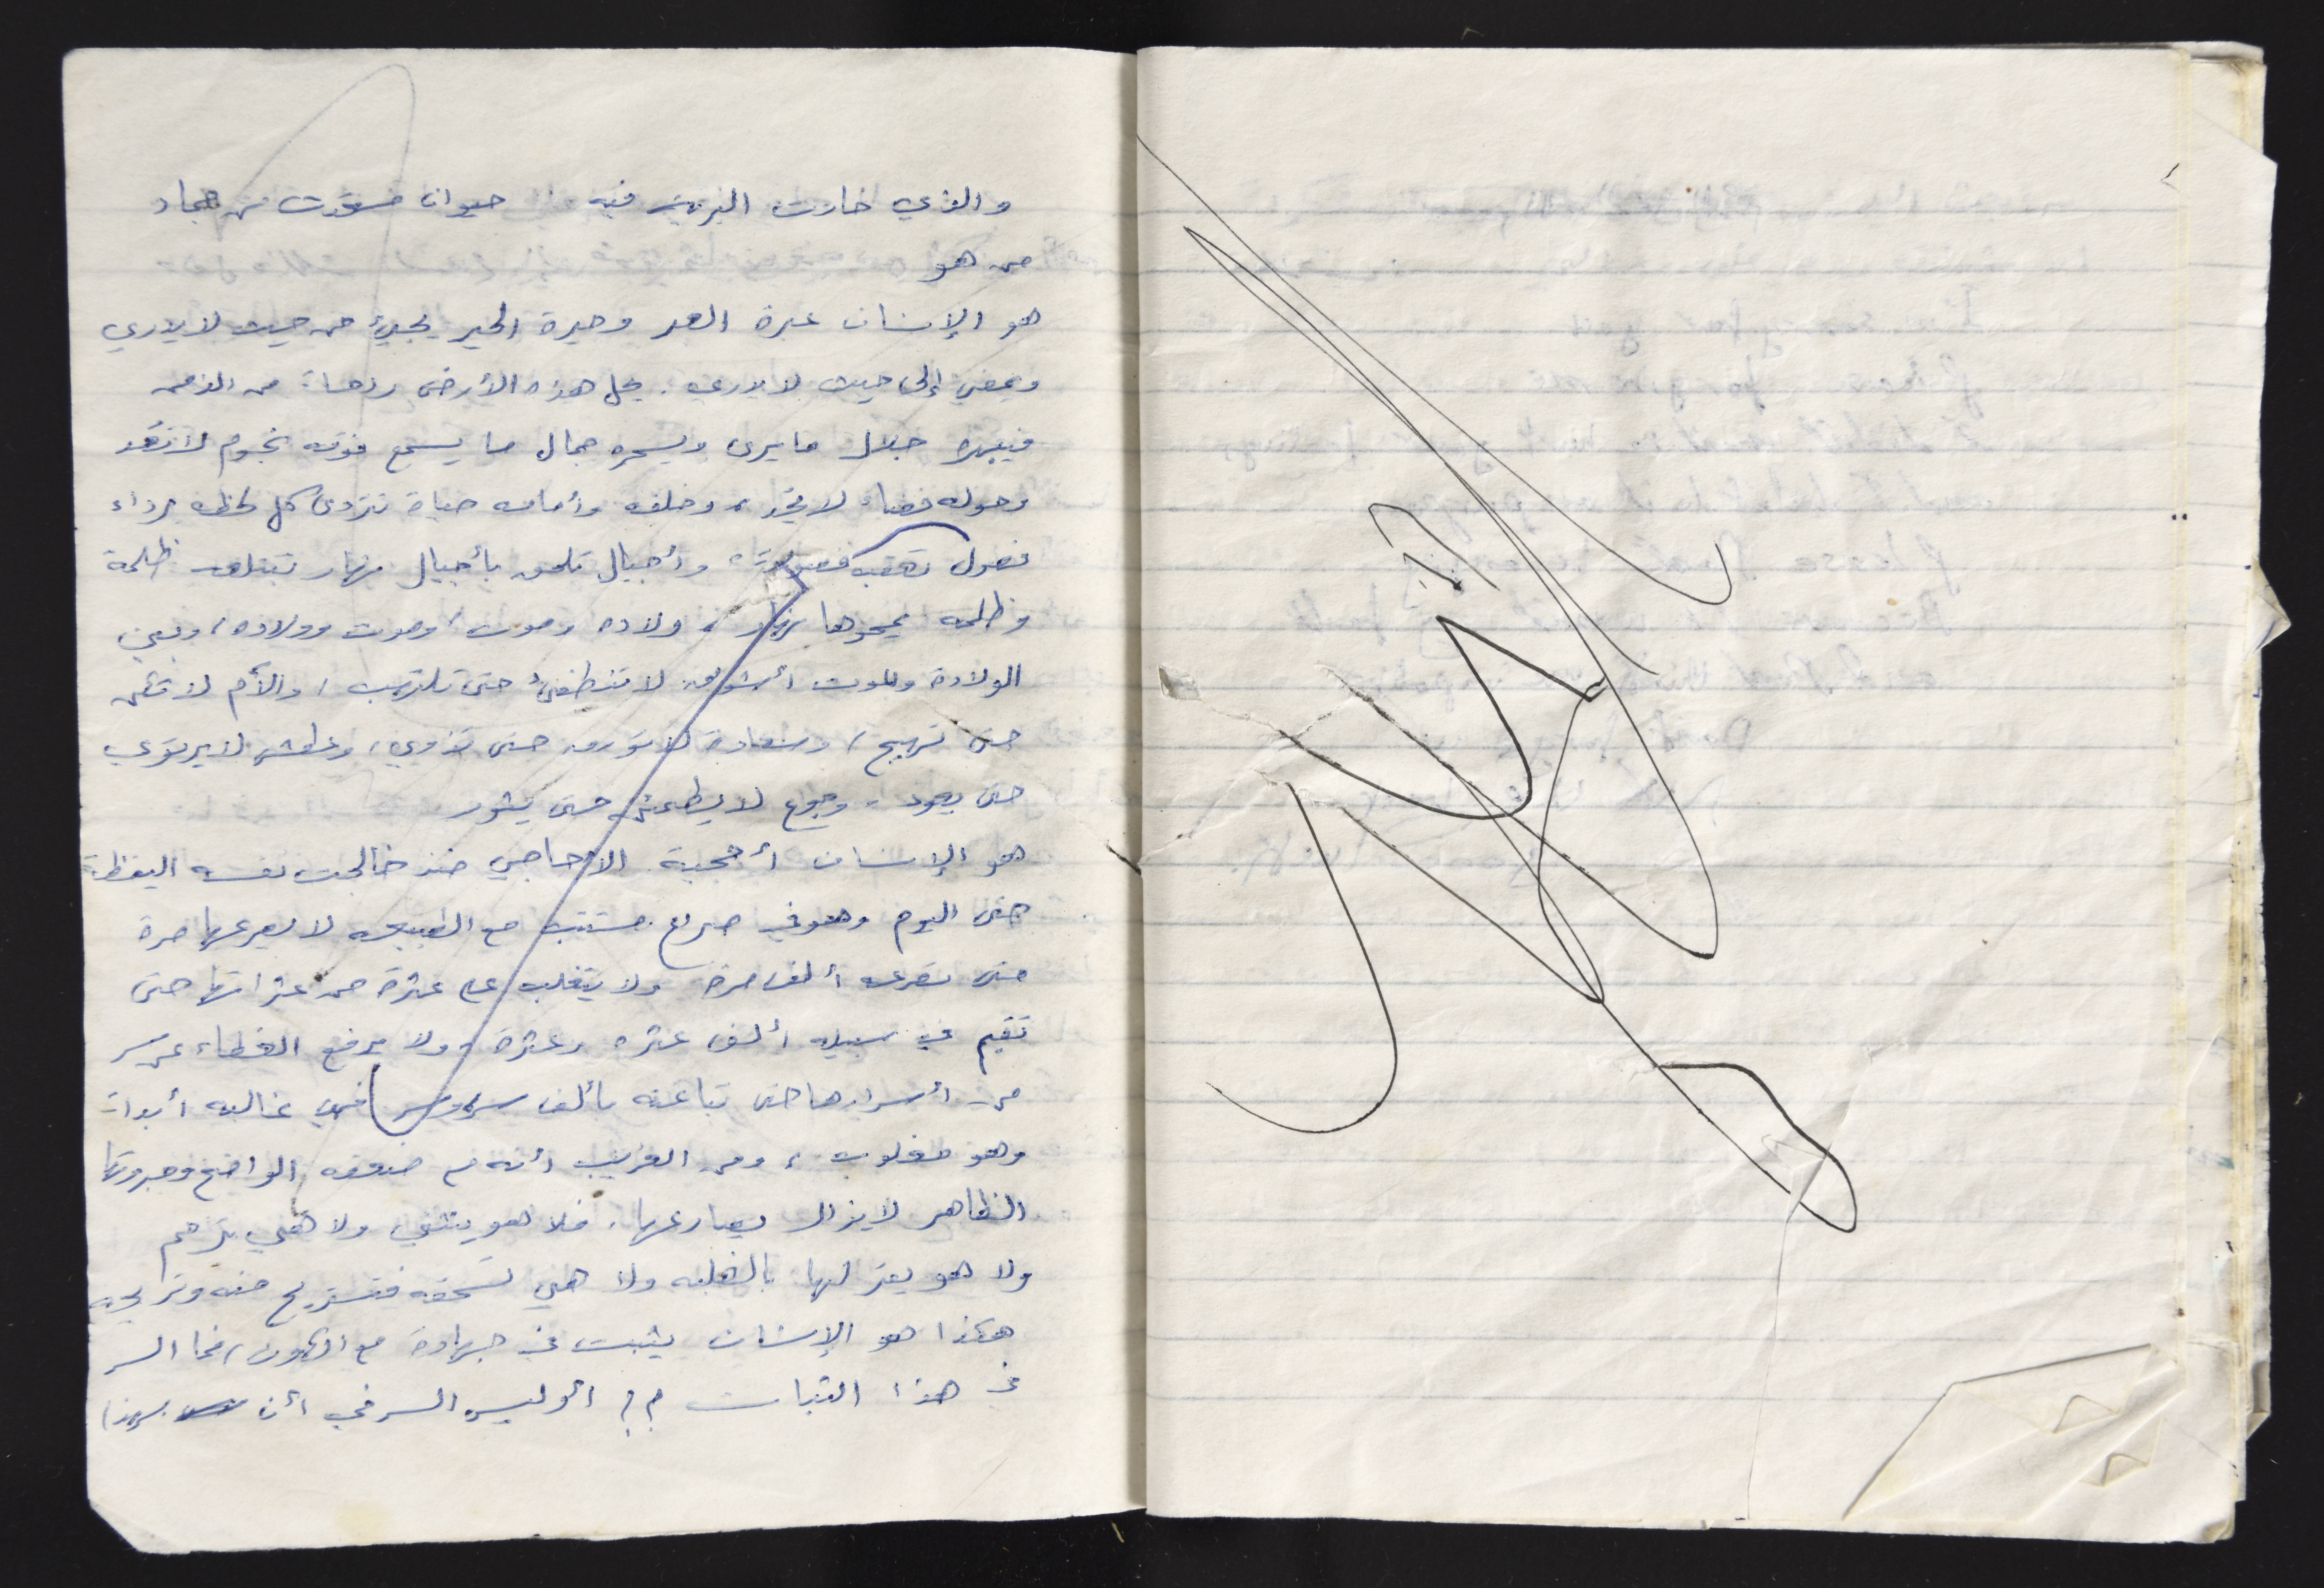 والذي حارت البرية فيه حيوان مستحدث من جماد
من هو
هو الإنسان عبرة العبر وحيرة الحير يجيئ من حيث لا يدري
ويمضي إلى حيث لا يدري. يحل هذه الأرض ردحاً من الزمن
فيبهره جلال ما يرى ويسحره جمال ما يسمع فوقه نجوم لا تعد
وحوله فضاء لا يحد، وخلفه وأمامه حياة تتردى كل لحظه برداء
فصول تعقب فصولاً، وأجيال تلحق بأجيال نهار تبتلعه ظلمة
وظلمه يمحوها نهار، ولاده وموت، وموت وولاده، وبين
الولادة والموت أشواق لا تنطفئ حتى تلتهب، والآم لا تنم
حتى تهيج، وسعادة لا تورق حتى تذوي، وعطش لا يرتوي
حتى يعود، وجوع لا يطمئن حتى يثور
هو الإنسان أحجية الأحاجي منذ خالجت نفسه اليقظة
حتى اليوم وهو في صراع مستتب مع الطبيعه لا يصرعها مرة
حتى تصرعه ألف مرة ولا يتغلب على عثرة من عثراتها حتى
تقيم في سبيله ألف عثره وعثرة، ولا يرفع الغطاء عن سر
من أسرارها حتى تباغته بألف سر وسر فهي غالبه أبداً
وهو مغلوب، ومن الغريب أنه مع ضعفه الواضح وجبروتها
الظاهر لا يزال يصارعها. فلا هو ينثني ولا هي ترحم
ولا هو يعترف لها بالغلبه ولا هي تسحقه فتستريح منه وتريحه
هكذا هو الإنسان يثبت في جهاده مع الكون، فما السر
في هذا الثبات ؟؟ أوليس السر في أن بهذا